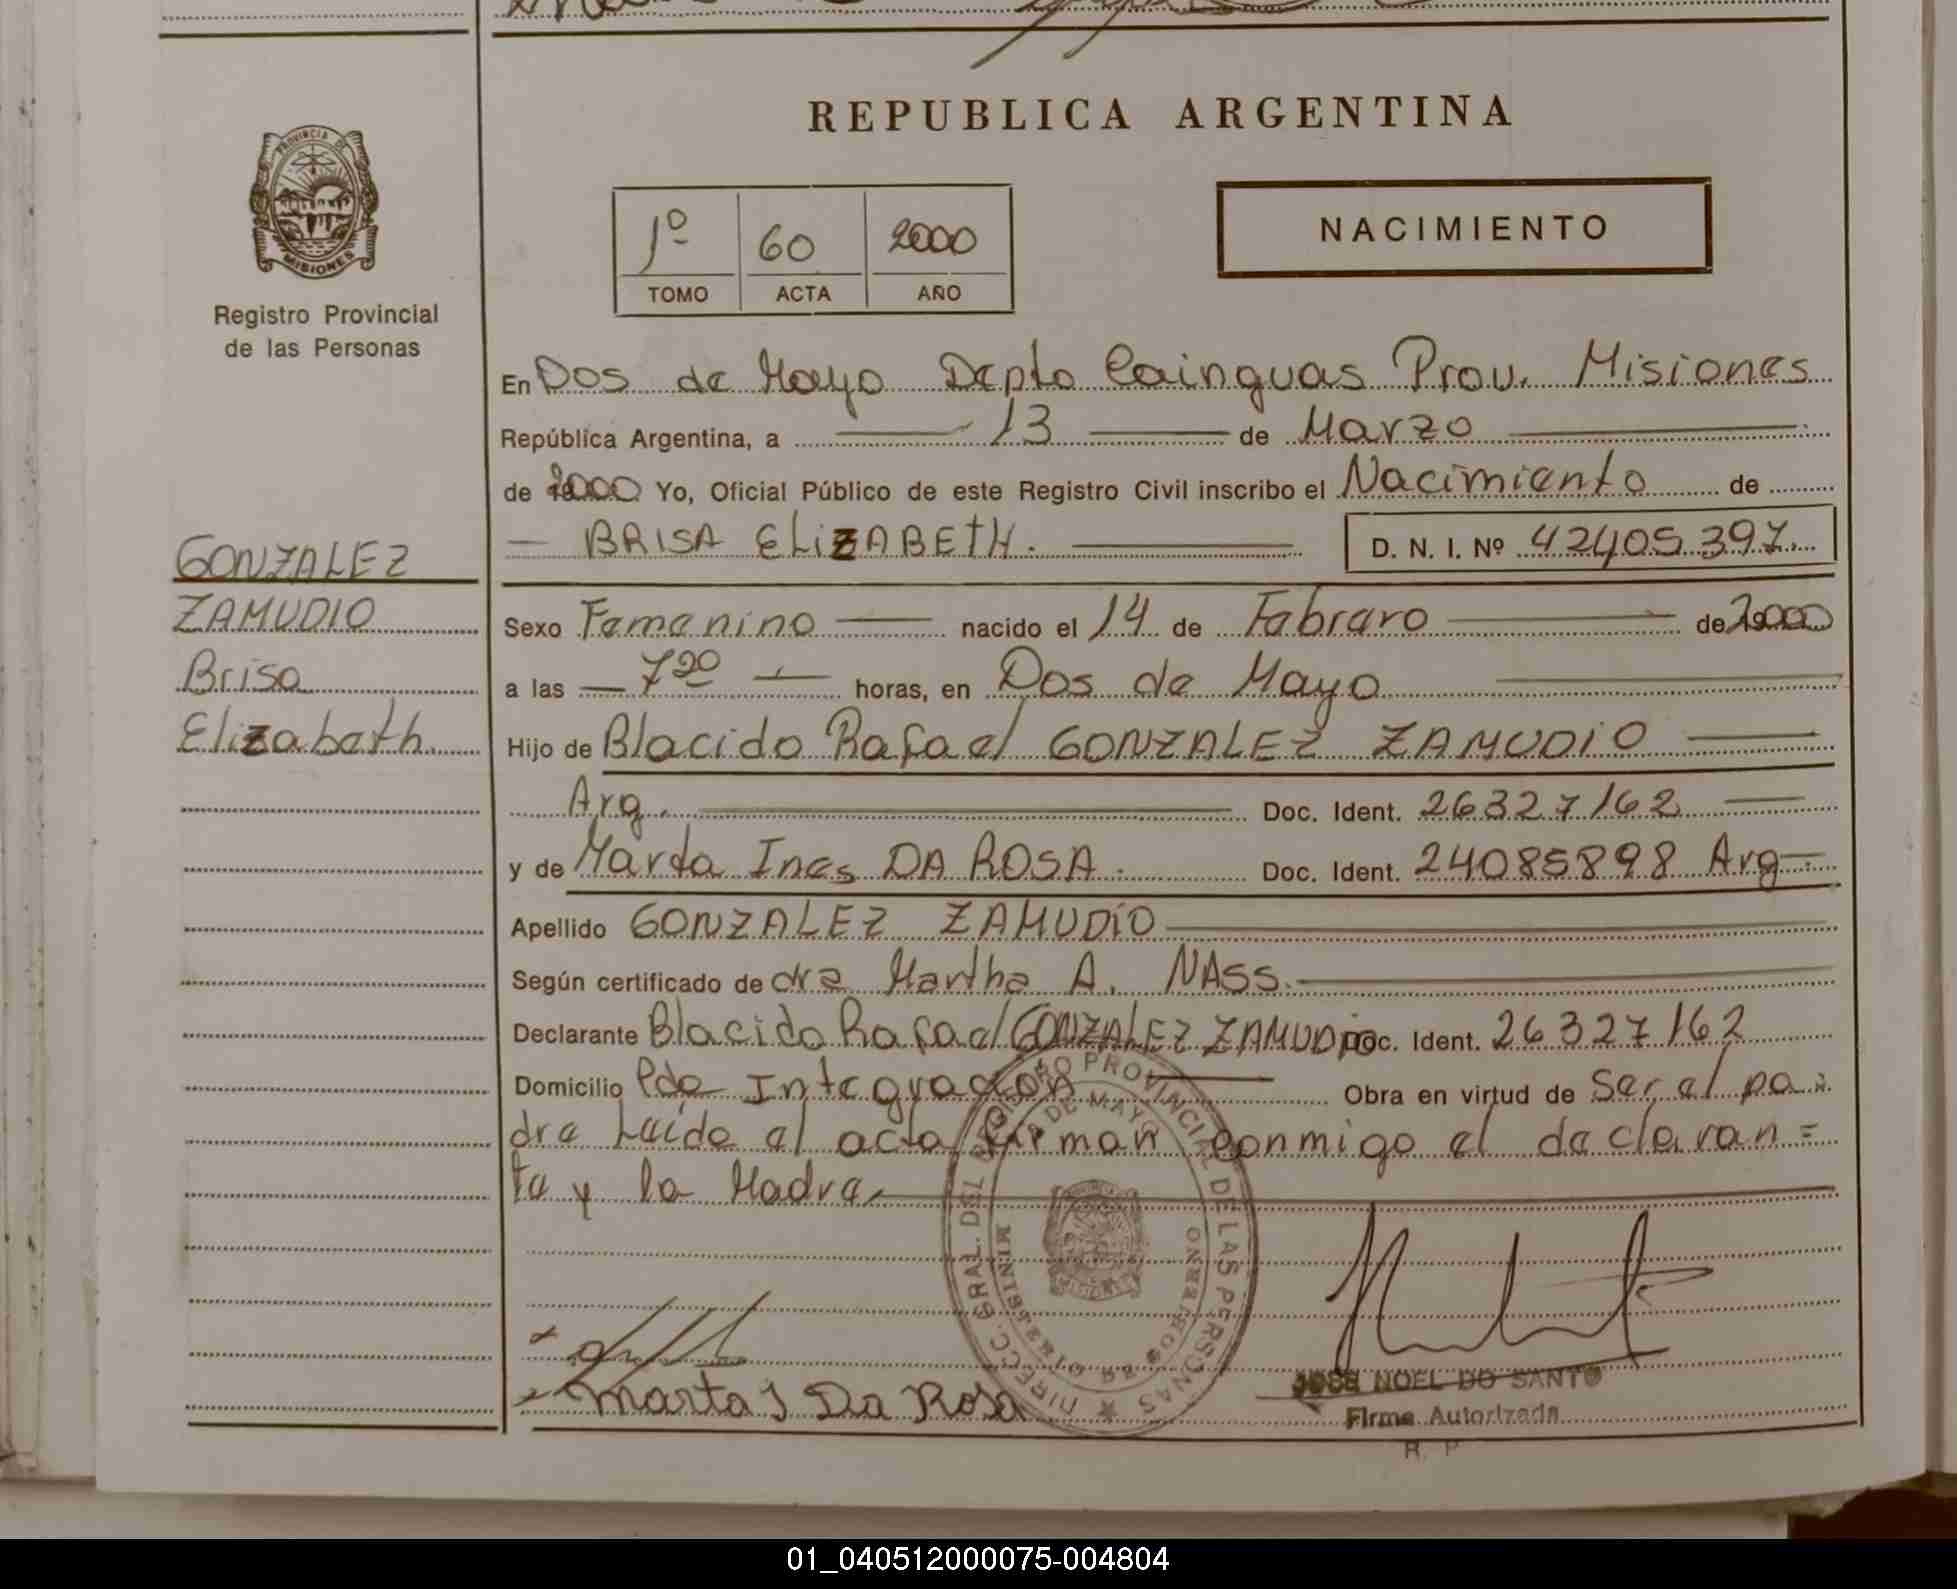 REPUBLICA ARGENTINA
PROVINCIA DE
MISIONES
Registro Provincial
de las Personas
1º 60 2000
TOMO ACTA AÑO
NACIMIENTO
En Dos de Mayo Depto Cainguas Prov. Misiones
República Argentina, a 13 de Marzo
de 2000 Yo, Oficial Público de este Registro Civil inscribo el Nacimiento de
BRISA ELIZABETH. D. N. I. Nº 42405397.
GONZALEZ
ZAMUDIO
Brisa
Elizabeth.
Sexo Femenino nacido el 14 de Febrero de 2000
a las 7 20 horas, en Dos de Mayo
Hijo de Blacido Rafael GONZALEZ ZAMUDIO
Arg. Doc. Ident. 26327162
y de Marta Ines DA ROSA. Doc. Ident. 24085898 Arg.
Apellido GONZALEZ ZAMUDIO
Según certificado de dra Martha A. NASS.
Declarante Blacido Rafael GONZALEZ ZAMUDIO Doc. Ident. 26327162
Domicilio Pdo Integracion Obra en virtud de Ser el pa=
dre Leída el acta firman conmigo el declaran=
te y la Madre.
DIRECC. GRAL. DEL REGISTRO PROVINCIAL DE LAS PERSONAS
DE MAYO
MINISTERIO DE GOBIERNO
MISIONES
Marta I Da Rosa
JOSE NOEL DO SANTO
Firma Autorizada
R. P
01_040512000075-004804